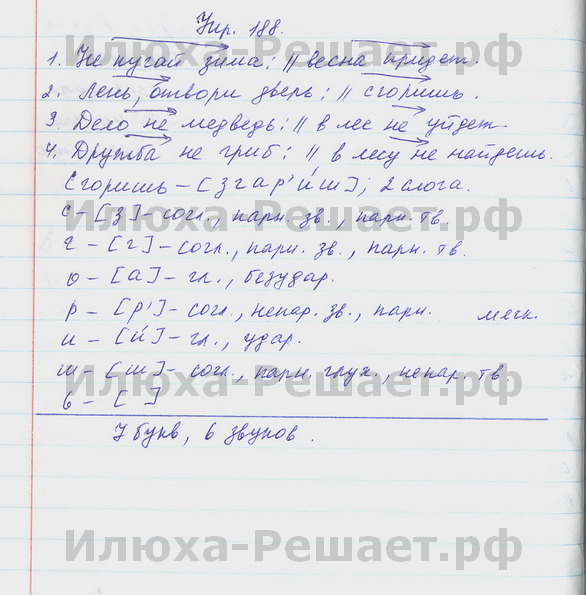 Упр. 188.
1. Не пугай зима: || весна придет.
2. Лень, отвори дверь: || сгоришь.
3. Дело не медведь: || в лес не уйдет.
4. Дружба не гриб: || в лесу не найдешь.
Сгоришь – [згар'иш], 2 слога.
с – [з] – согл., парн. зв., парн. тв.
г – [г] – согл., парн. зв., парн. тв.
о – [а] – гл., безудар.
р – [р'] – согл., непар. зв., парн. мягк.
и – [и́] – гл., удар.
ш – [ш] – согл., парн. глух., непар. тв.
ь – [ ]
7 букв, 6 звуков.
Илюха-Решает.рф
Илюха-Решает.рф
Илюха-Решает.рф
Илюха-Решает.рф